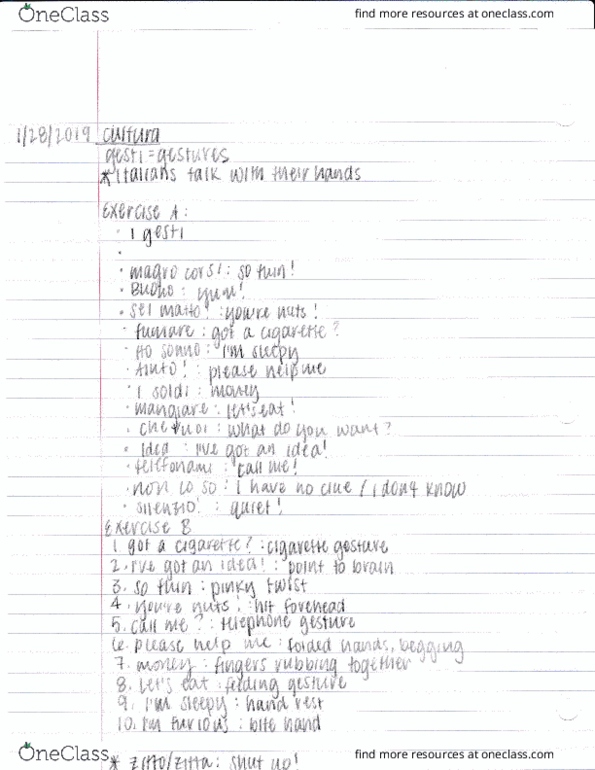 OneClass
find more resources at oneclass.com
1/28/2019 cultura
gesti = gestures
* Italians talk with their hands
Exercise A:
· I gesti
·
· magro così : so thin!
· Buono : yum!
· sei matto! : you're nuts!
· fumare : got a cigarette?
· Ho sonno : I'm sleepy
· Aiuto! : please help me
· I soldi : money
· mangiare : let's eat!
· che vuoi : what do you want?
· idea : I've got an idea!
· telefonami : call me!
· non lo so : I have no clue / I don't know
· silenzio! : quiet!
Exercise B
1. got a cigarette? : cigarette gesture
2. I've got an idea! : point to brain
3. so thin : pinky twist
4. you're nuts! : hit forehead
5. call me? : telephone gesture
6. please help me : folded hands, begging
7. money : fingers rubbing together
8. let's eat : feeding gesture
9. I'm sleepy : hand rest
10. I'm furious : bite hand
* zitto/zitta : shut up!
OneClass
find more resources at oneclass.com